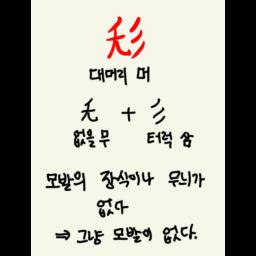 대머리 머
无 + 彡
없을 무 터럭 삼
모발의 장식이나 무늬가
없다
⇒ 그냥 모발이 없다.